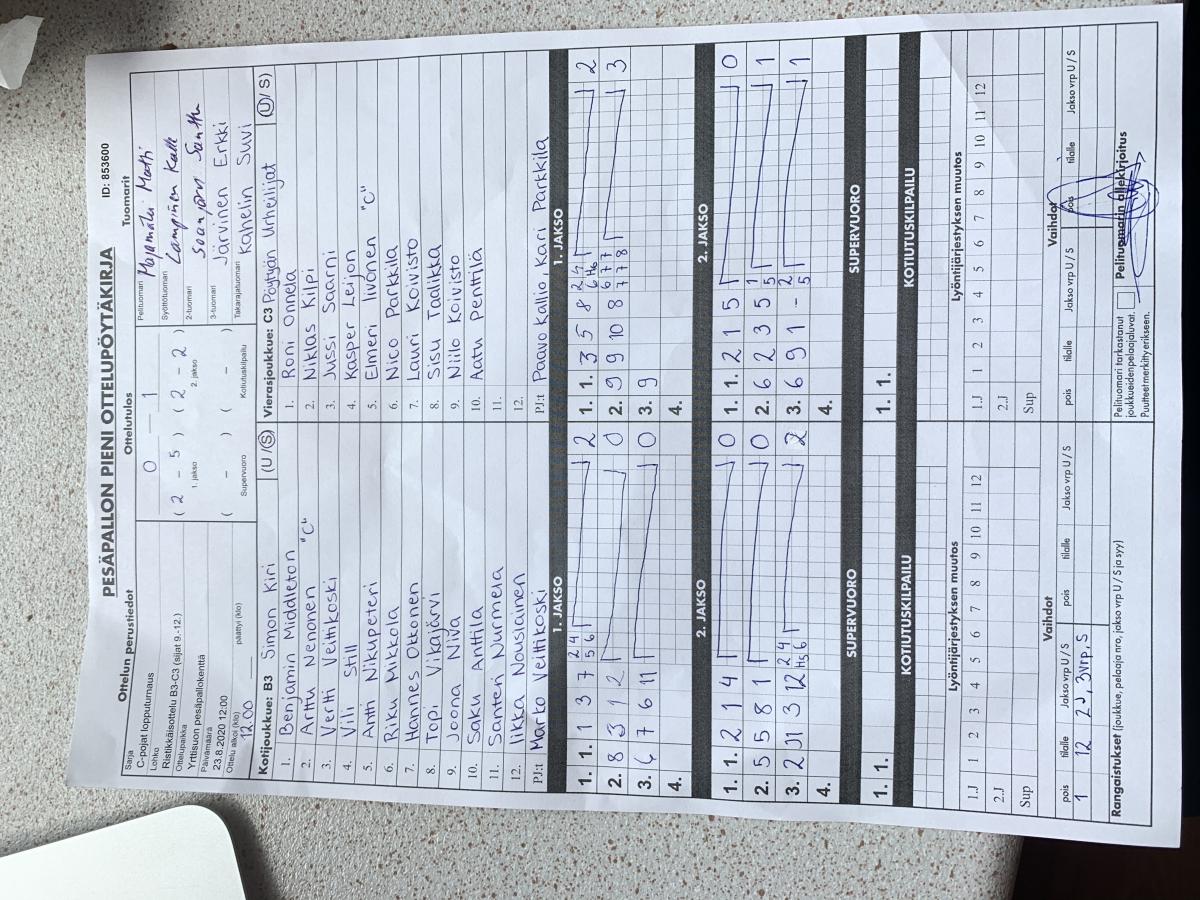 PESÄPALLON PIENI OTTELUPÖYTÄKIRJA ID: 853600
Ottelun perustiedot Ottelutulos Tuomarit
Sarja
C-pojat lopputurnaus
Lohko
Ristikkäisottelu B3-C3 (sijat 9.-12.)
Ottelupaikka
Yrttisuon pesäpallokenttä
Päivämäärä
23.8.2020 12:00
Ottelu alkoi (klo) päättyi (klo)
12.00
0 — 1
( 2 - 5 ) ( 2 - 2 )
1. jakso 2. jakso
( - ) ( - )
Supervuoro Kotiutuskilpailu
Pelituomari
Syöttötuomari
Lampinen Kalle
2-tuomari
3-tuomari
Järvinen Erkki
Takarajatuomari
Kahelin Suvi
Kotijoukkue: B3 Simon Kiri (U/S)
1. Benjamin Middleton
2. Arttu Nenonen "C"
3. Vertti Veitikoski
4. Vili Still
5. Antti Nikupeteri
6. Riku Mikkola
7. Hannes Okkonen
8. Topi Vikajärvi
9. Joona Niva
10. Saku Anttila
11. Santeri Nurmela
12. Iikka Nousiainen
PJ:t Marko Veitikoski
Vierasjoukkue: C3 Pöytyän Urheilijat (U/S)
1. Roni Onnela
2. Niklas Kilpi
3. Jussi Saarni
4. Kasper Leijon
5. Elmeri Iivonen "C"
6. Nico Parkkila
7. Lauri Koivisto
8. Sisu Taalikka
9. Niilo Koivisto
10. Aatu Penttilä
11.
12.
PJ:t Paavo Kallio Kari Parkkila
1. JAKSO 1. JAKSO
1. 1. 1 3 7 2 4 5 6 2
2. 8 3 1 2 0
3. 7 6 11 0
4.
1. 1. 3 5 8 2 4 2
2. 9 9 10 8 6 7 7 7 7 8 3
3. 9
4.
2. JAKSO 2. JAKSO
1. 1. 2 1 4 0
2. 5 5 8 1 0
3. 2 J1 3 12 2 4 H5 6 2
4.
1. 1. 2 1 5 0
2. 6 2 3 5 1 5 1
3. 6 9 1 - 2 5 1
4.
SUPERVUORO SUPERVUORO
1. 1. 1. 1.
KOTIUTUSKILPAILU KOTIUTUSKILPAILU
Lyöntijärjestyksen muutos Lyöntijärjestyksen muutos
1.J 1 2 3 4 5 6 7 8 9 10 11 12 1.J 1 2 3 4 5 6 7 8 9 10 11 12
2.J 2.J
Sup Sup
Vaihdot Vaihdot
pois tilalle Jakso vrp U / S pois tilalle Jakso vrp U / S pois tilalle Jakso vrp U / S pois tilalle Jakso vrp U / S
1 12 2J, 3vrp, S
Rangaistukset (joukkue, pelaaja nro, jakso vrp U / S ja syy)
Pelituomari tarkastanut
joukkueidenpelaajaluvat.
Puutteet merkitty erikseen.
Pelituomarin allekirjoitus